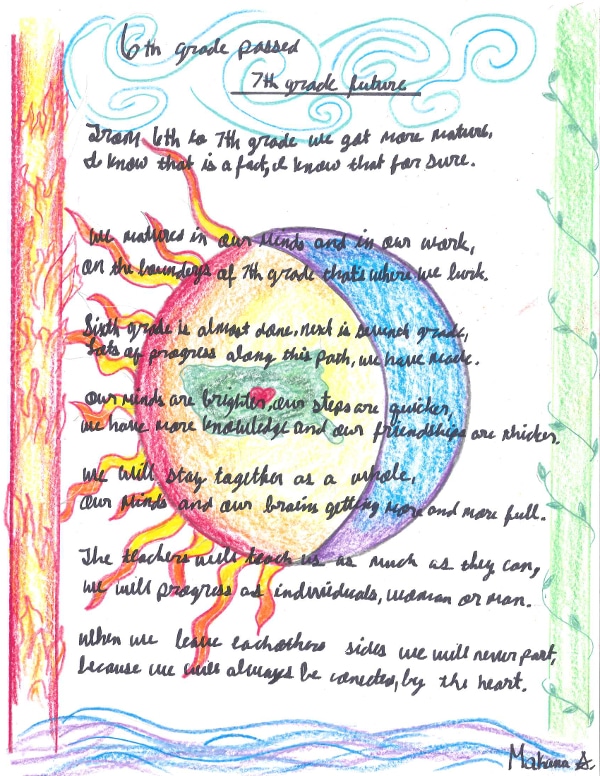 6th grade passed
7th grade future
From 6th to 7th grade we got more mature,
I know that is a fact, I know that for sure.
We matures in our minds and in our work,
on the boundeys of 7th grade thats where we lurk.
Sixth grade is almost done, next is seventh grade,
Lots of progress along this path, we have made.
Our minds are brighter, our steps are quicker,
we have more knowledge and our friendships are thicker.
We will stay together as a whole,
our minds and our brains getting more and more full.
The teachers will teach us as much as they can,
we will progress as individuals, woman or man.
When we leave eachothers sides we will never part,
because we will always be conected, by the heart.
Mahana A.